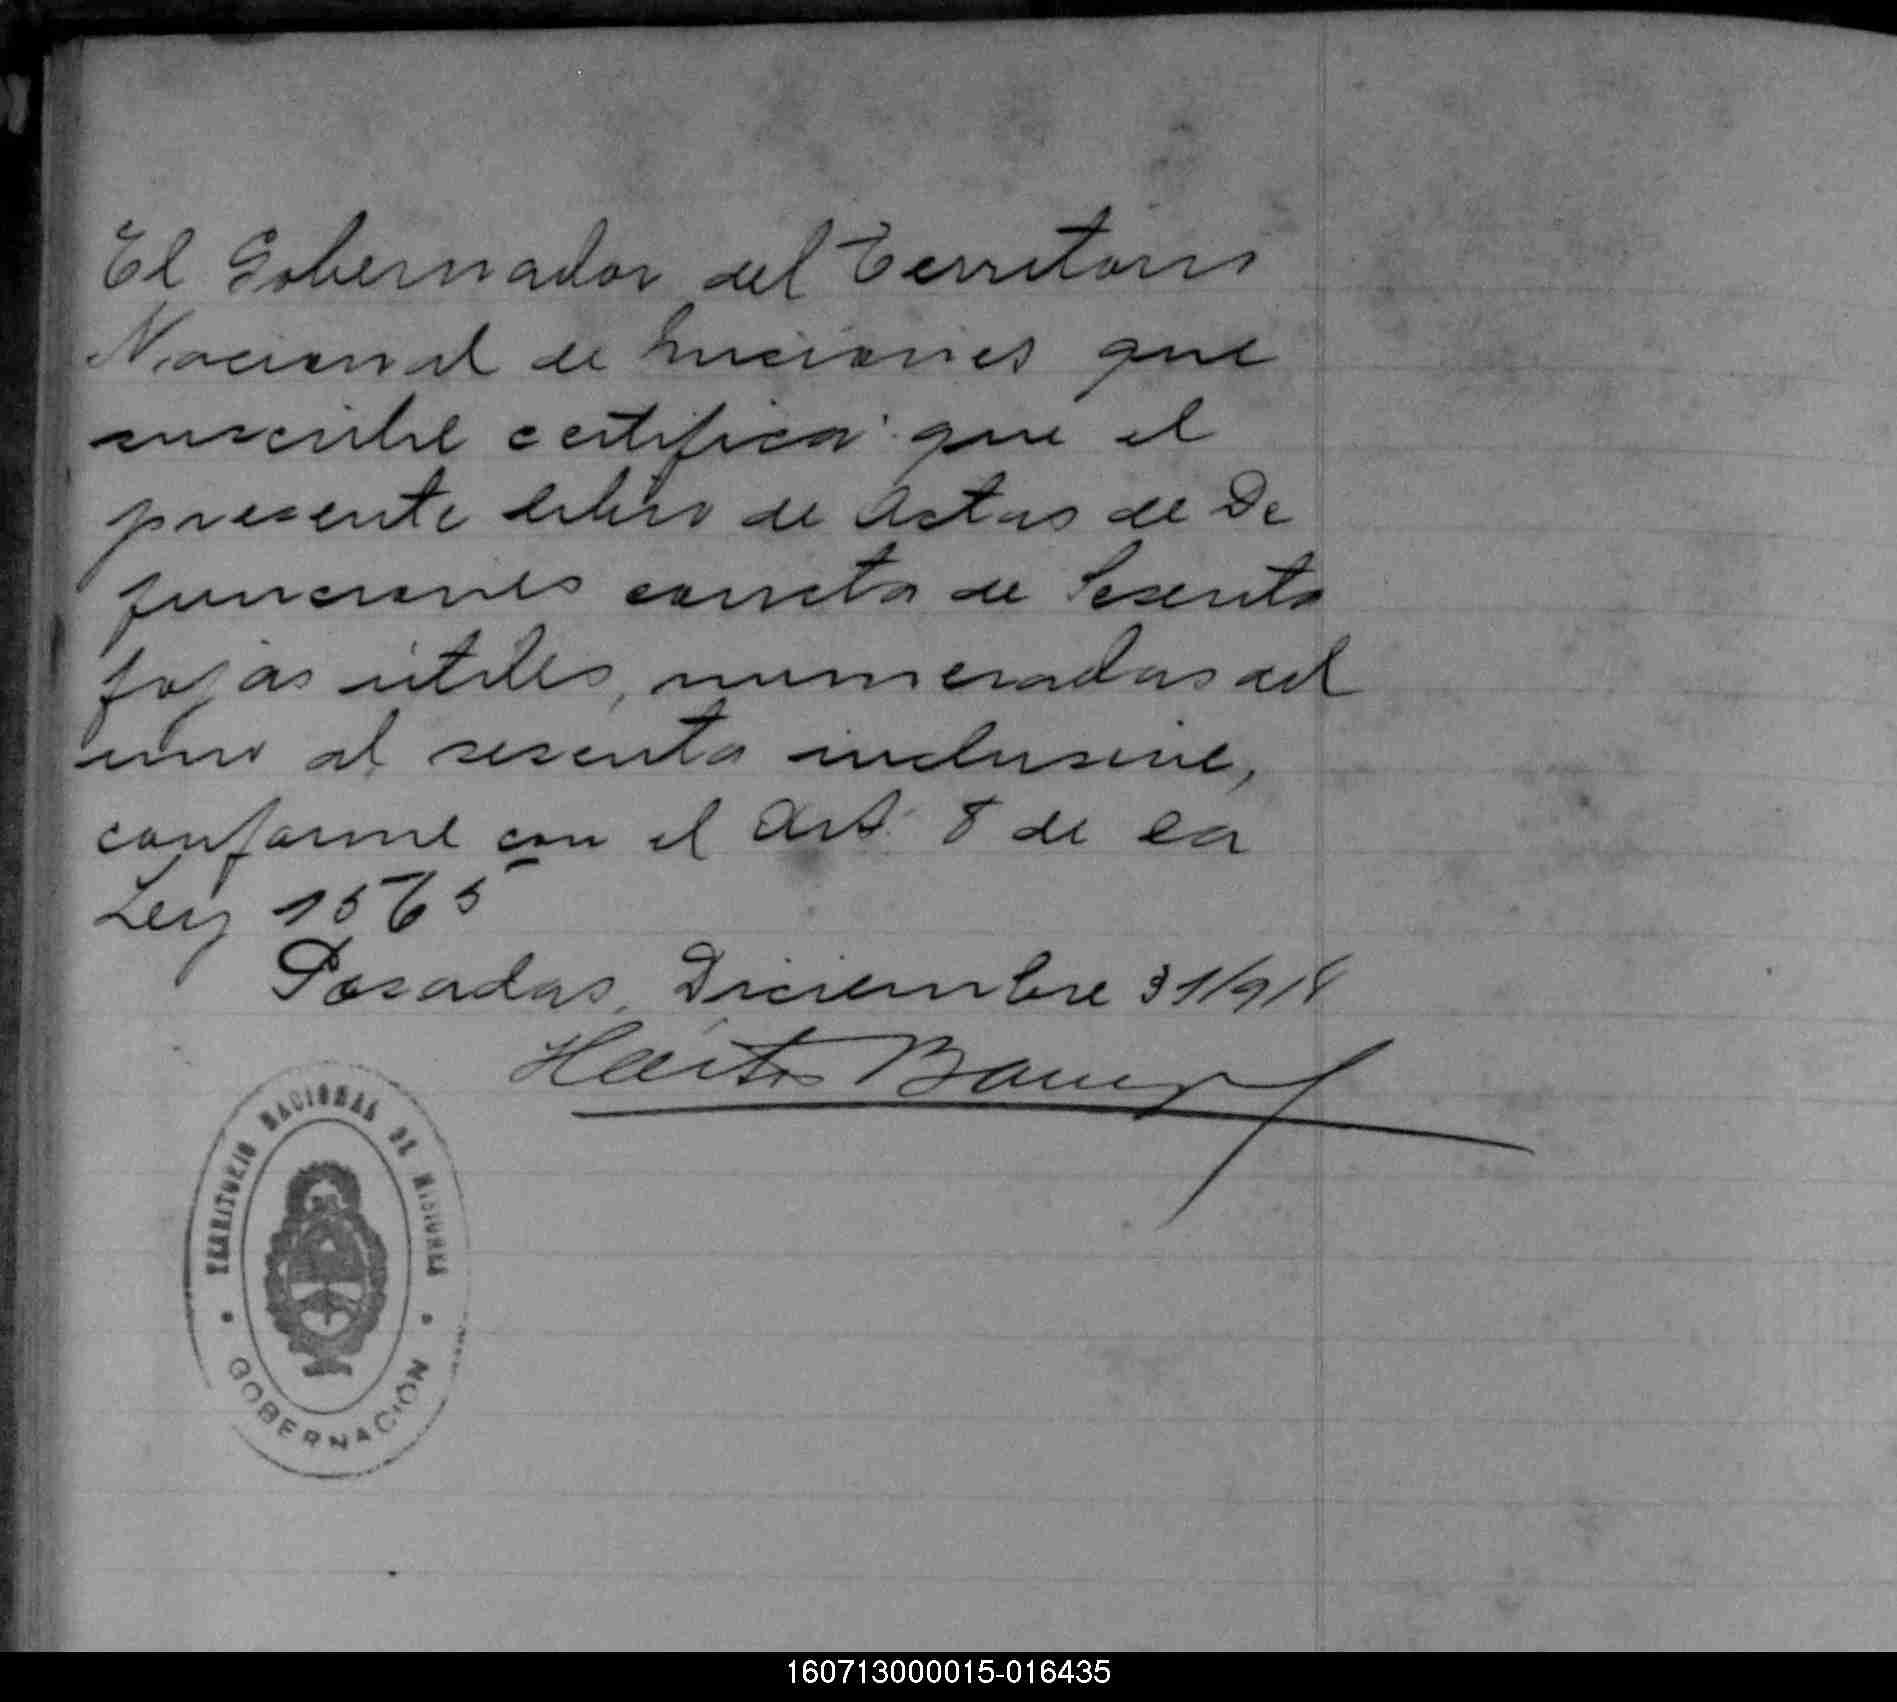 El Gobernador del Territorio
Nacional de Misiones que
suscribe certifica que el
presente libro de Actas de De
funciones consta de Sesenta
fojas útiles, numeradas del
uno al sesenta inclusive,
conforme con el Art. 8 de la
Ley 1565
Posadas, Diciembre 31/918
TERRITORIO NACIONAL DE MISIONES
GOBERNACIÓN
160713000015-016435